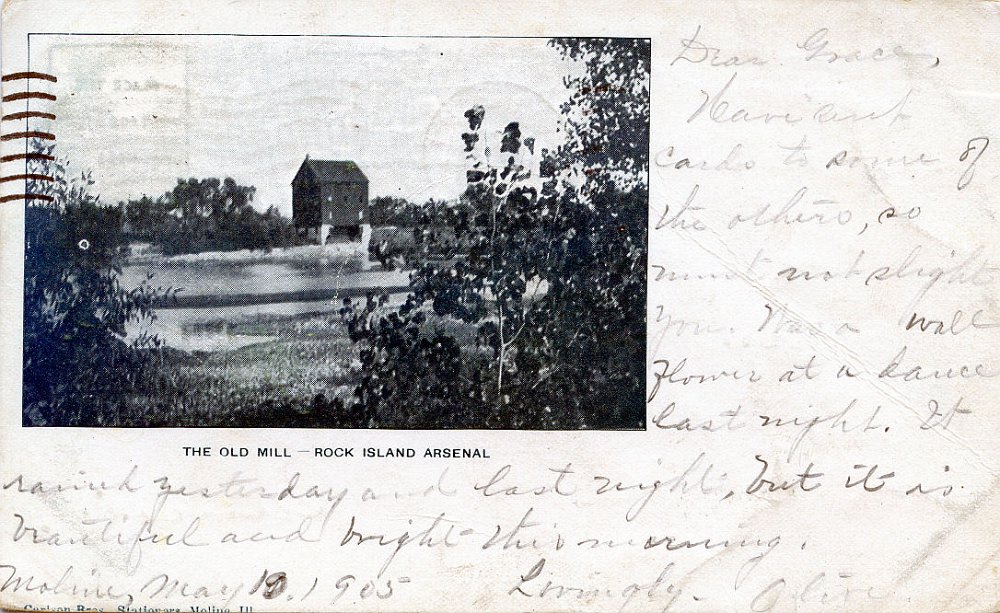 Dear Grace,
Have sent
cards to some of
the others, so
must not slight
you. Was a wall
flower at a dance
last night. It
THE OLD MILL — ROCK ISLAND ARSENAL
rained yesterday and last night, but it is
beautiful and bright this morning.
Moline, May 10, 1905 Lovingly, Olive.
Carlson Bros. Stationers, Moline, Ill.